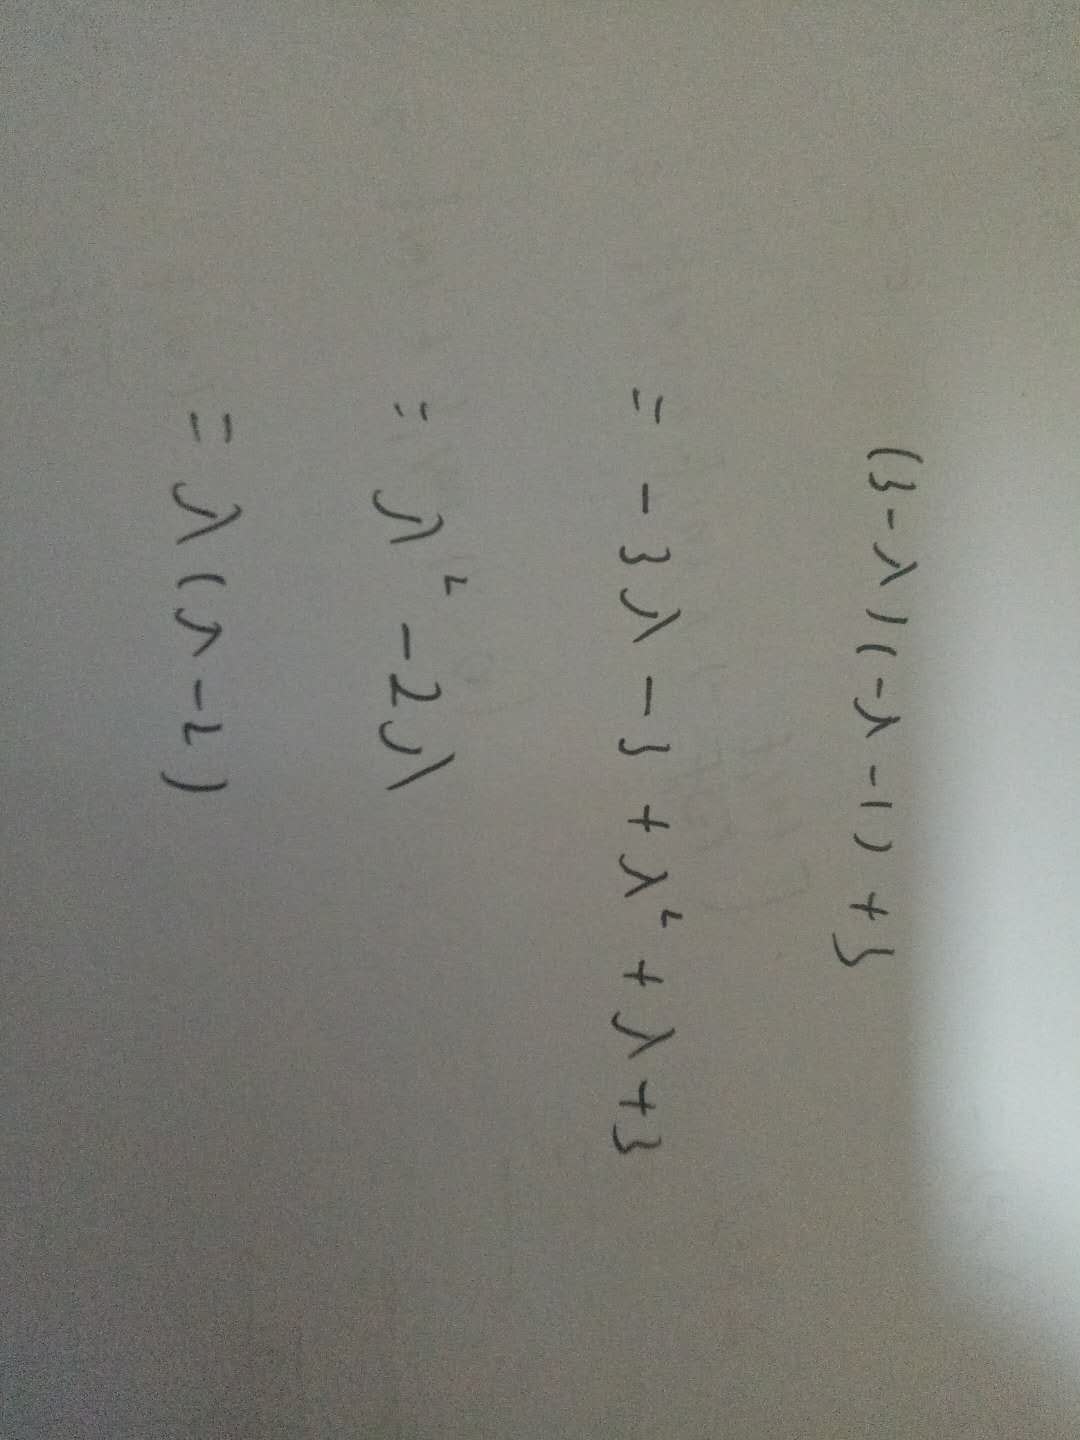 (3-λ)(-λ-1)+3
= -3λ-3+λ²+λ+3
= λ²-2λ
= λ(λ-2)